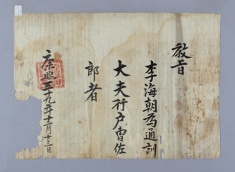 教旨
李海朝爲通訓
大夫行戶曹佐
郎者
康熙五十九年十二月十二日